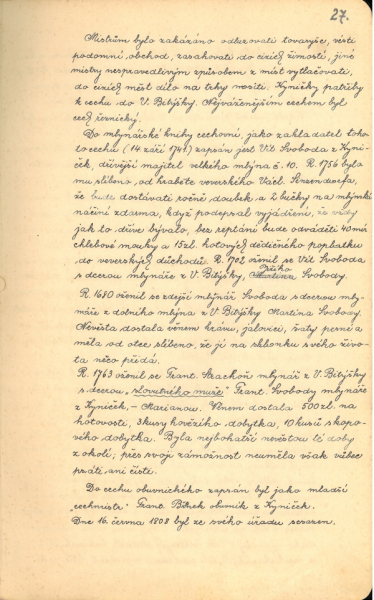 27.
Mistrům bylo zakázáno odluzovati tovaryše, vésti
podomní obchod, zasahovati do cizích živností, jiné
mistry nespravedlivým způsobem z míst vytlačovati,
do cizích měst dílo na trhy nositi. Kyničky patřily
k cechu do V. Bítýšky. Nejváženějším cechem byl
cech řeznický.
Do mlynářské knihy cechovní, jako zakladatel toho-
to cechu (14. září 1741) zapsán jest Vít Svoboda z Kyni-
ček, dřívější majitel velkého mlýna č. 10. R. 1756 bylo
mu slíbeno, od hraběte veverského Václ. Sinzendorfa,
že bude dostávati ročně doubek a 2 bučky na mlýnské
náčiní zdarma, když podepsal vyjádření, že vždy
jak to dříve bývalo, bez reptání bude odváděti 40 měr
chlebové mouky a 15 zl. hotových dědičného poplatku
do veverských důchodů. R. 1702 oženil se Vít Svoboda
s dcerou mlynáře z V. Bítýšky, Jiřího Svobody.
R. 1680 oženil se zdejší mlynář Svoboda s dcerou mly-
náře z dolního mlýna z V. Bítýšky Martina Svobody.
Nevěsta dostala věnem krávu, jalovici, šaty peřině a
měla od otce slíbeno, že jí na sklonku svého živo-
ta něco přidá.
R. 1763 oženil se Frant. Strachoň mlynář z V. Bítýšky
s dcerou „slovutného muže" Frant. Svobody mlynáře
z Kyniček, – Mariannou. Věnem dostala 500 zl. na
hotovosti, 3 kusy hovězího dobytka, 10 kusů skopo-
vého dobytka. Byla nejbohatší nevěstou té doby
z okolí; přes svoji zámožnost neuměla však vůbec
psáti ani čísti.
Do cechu obuvnického zapsán byl jako mladší
„cechmistr" Franc. Bílek obuvník z Kyniček.
Dne 16. června 1808 byl ze svého úřadu sesazen.